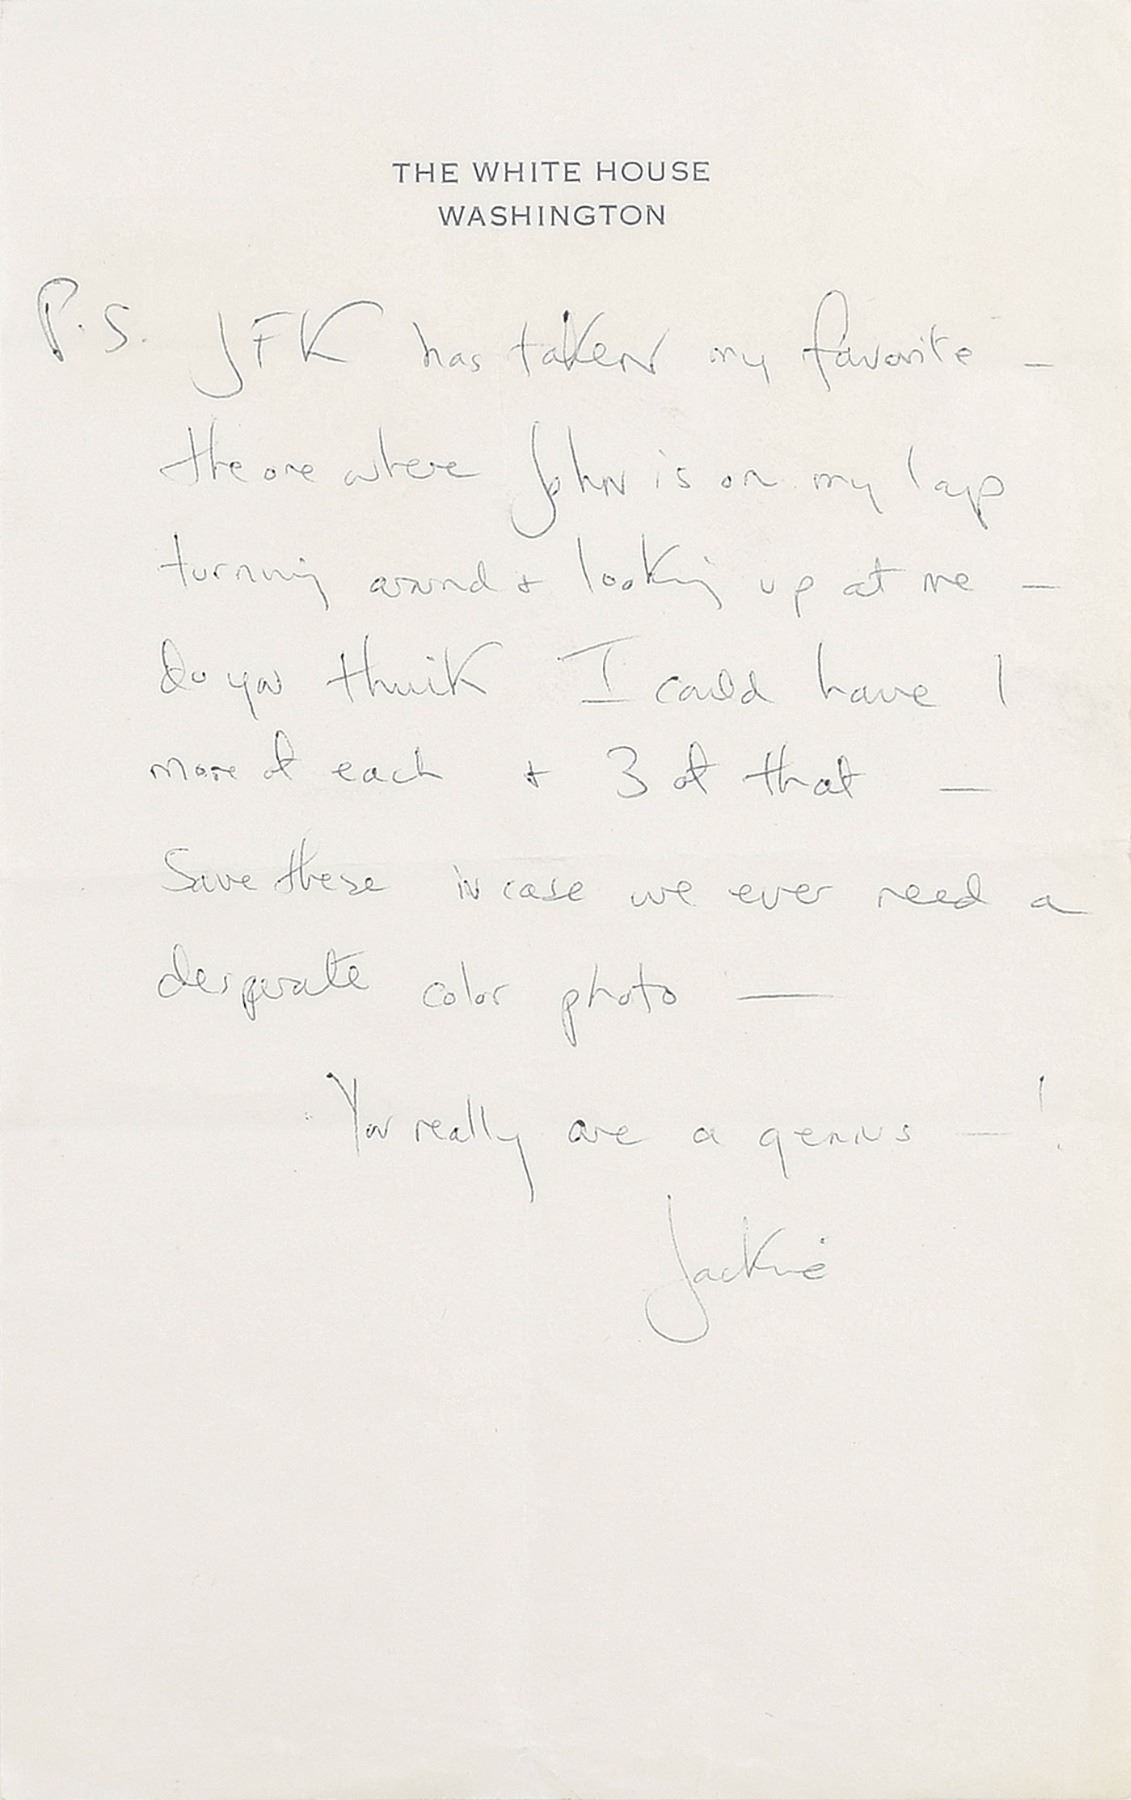 THE WHITE HOUSE
WASHINGTON
P.S. JFK has taken my favorite —
the one where John is on my lap
turning around & looking up at me —
do you think I could have 1
more of each & 3 of that —
Save these in case we ever need a
desperate color photo —
You really are a genius — !
Jackie